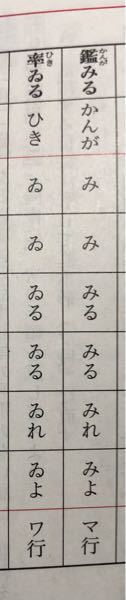 鑑みる かんが み み みる みる みれ みよ マ行
率ゐる ひき ゐ ゐ ゐる ゐる ゐれ ゐよ ワ行